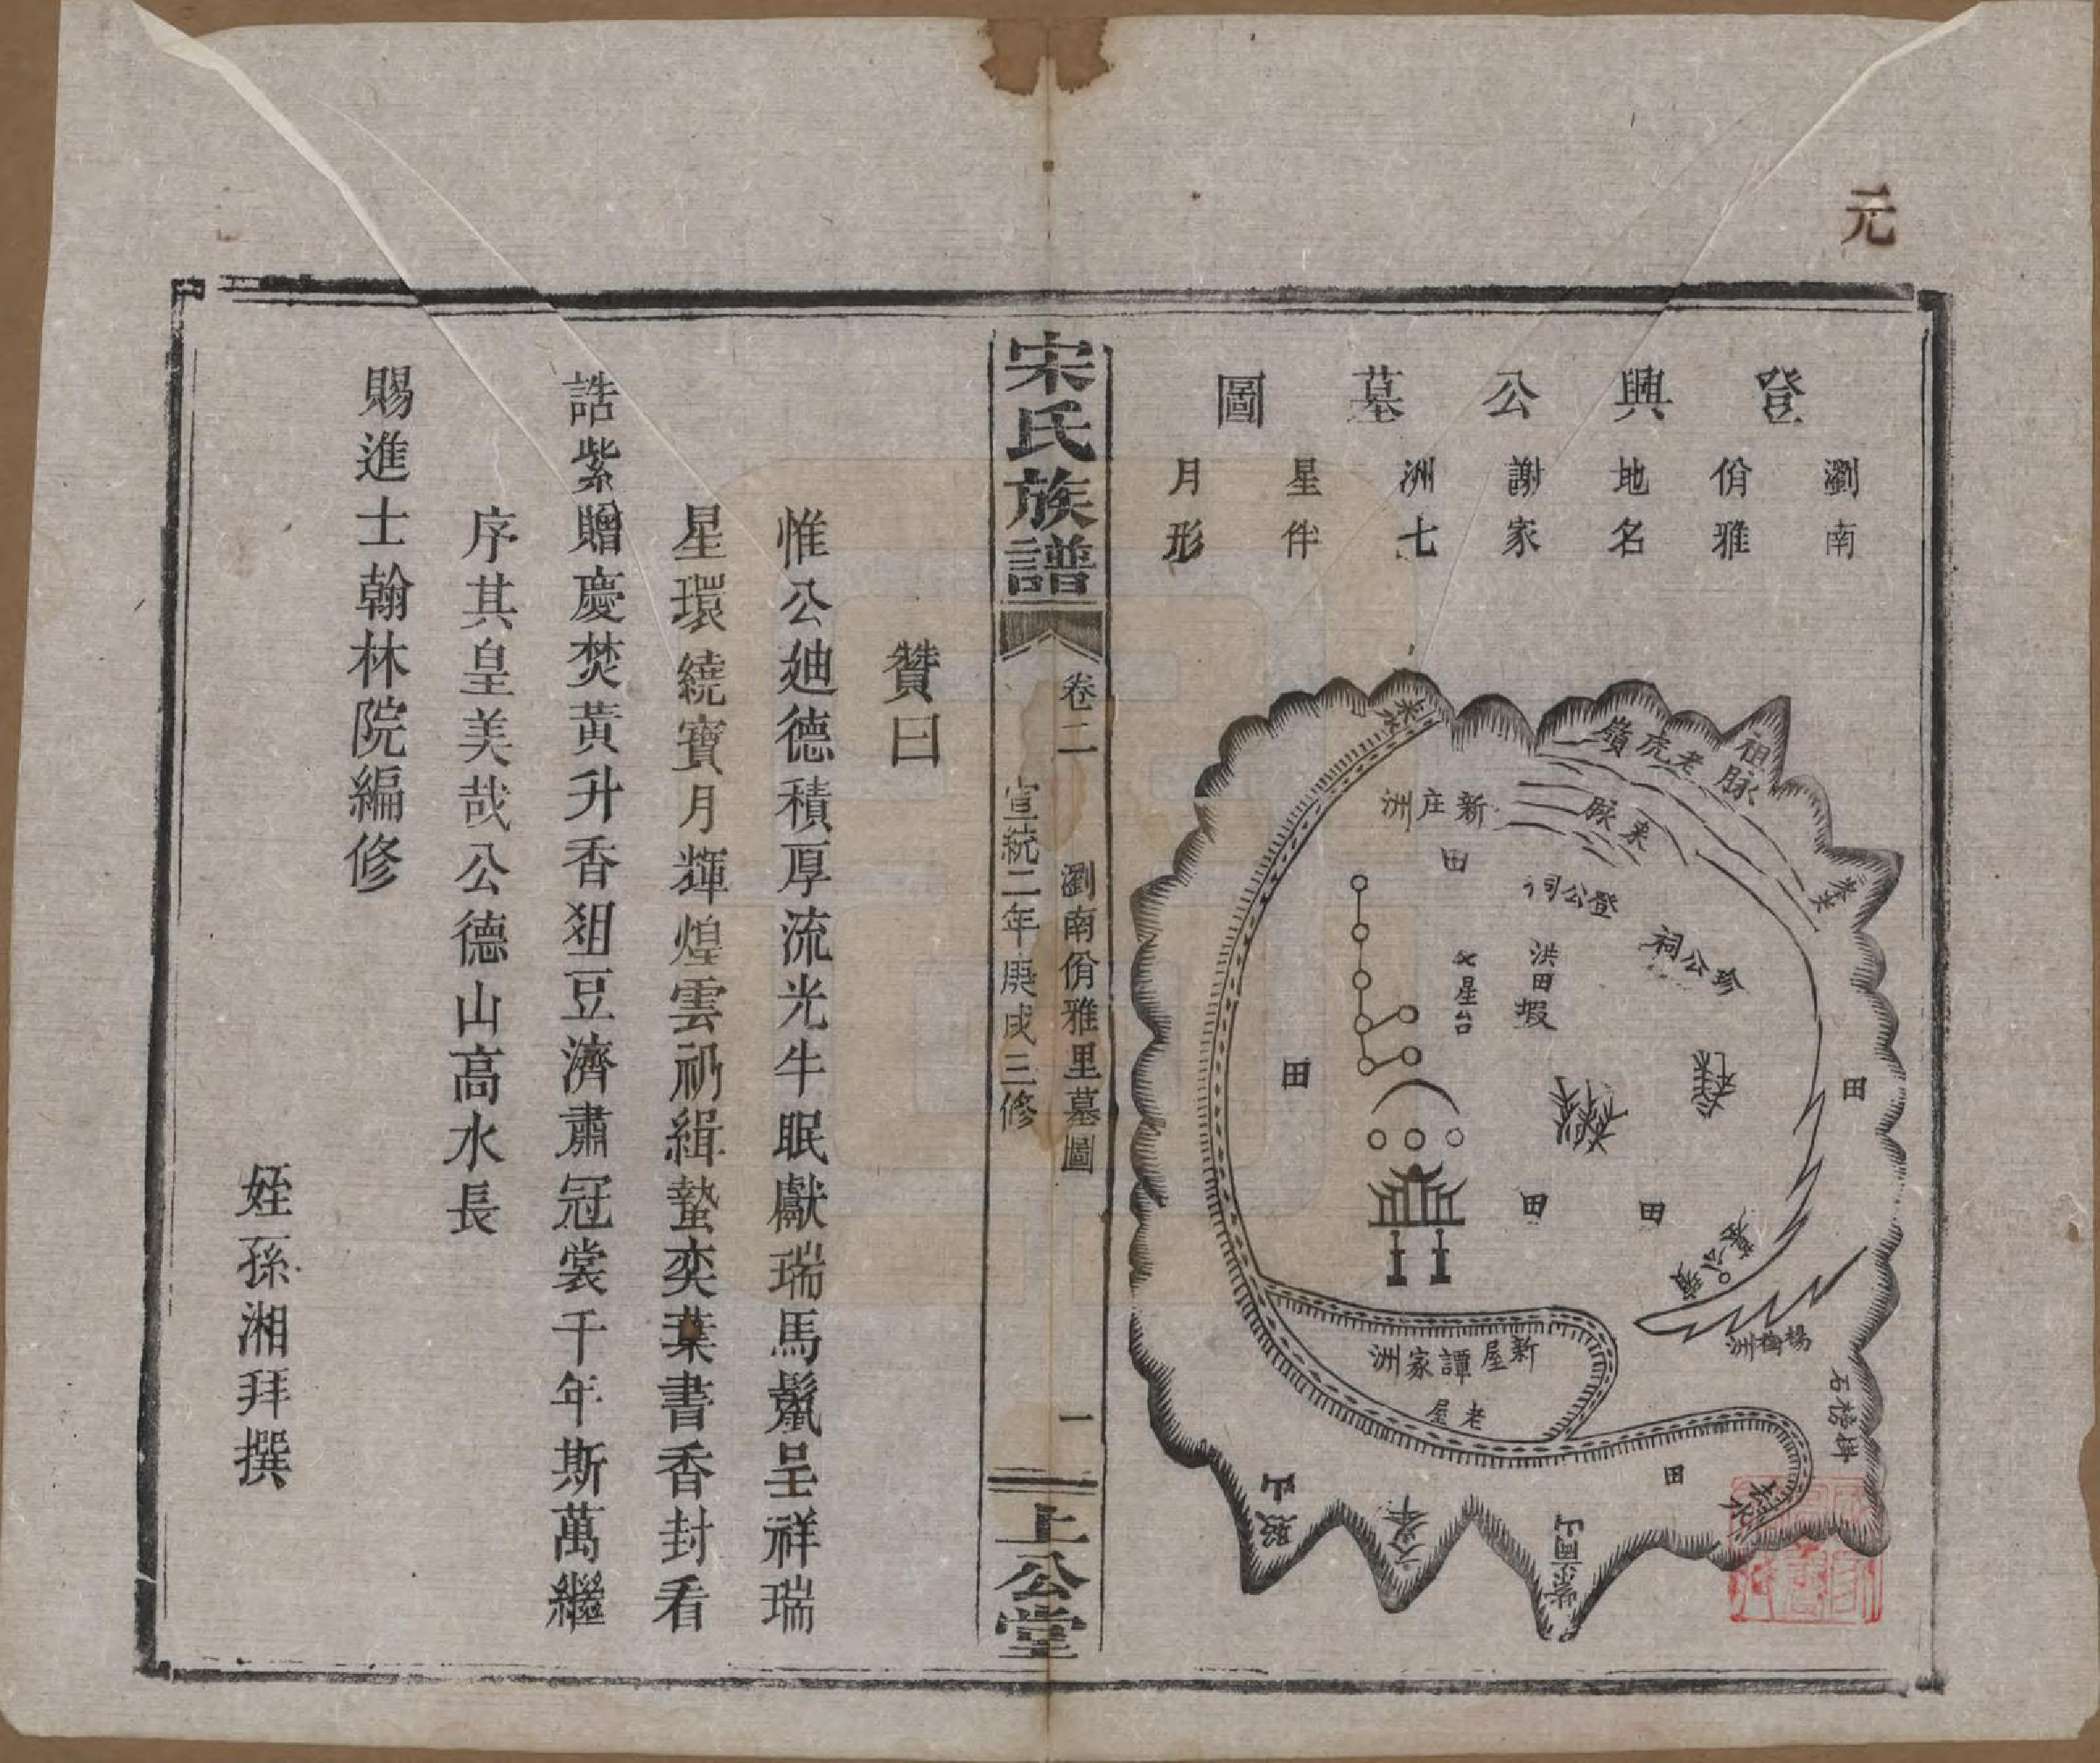 元
登興公墓圖
瀏南
佾雅
地名
謝家
洲七
星伴
月形
祖脉
老虎嶺
来脉
新庄洲
田
登公祠
珍公祠
洪田塅
七星台
田
田
田
田
楊梅洲
石榜
新屋譚家洲
老屋
田
宋氏族譜
卷二
瀏南佾雅里墓圖
一
宣統二年庚戌三修
上公堂
贊曰
惟公廸德積厚流光牛眠獻瑞馬鬛呈祥瑞
星環繞寶月輝煌雲礽緝蟄奕葉書香封看
誥紫贈慶焚黃升香爼豆濟肅冠裳千年斯萬繼
序其皇美哉公德山高水長
賜進士翰林院編修
姪孫湘拜撰